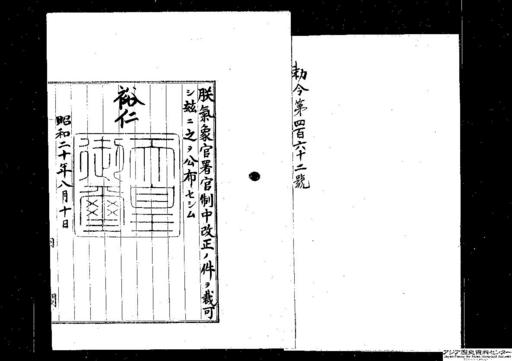 勅令第四百六十二號
朕氣象官署官制中改正ノ件ヲ裁可
シ玆ニ之ヲ公布セシム
裕仁
天皇御璽
昭和二十年八月十日
アジア歴史資料センター